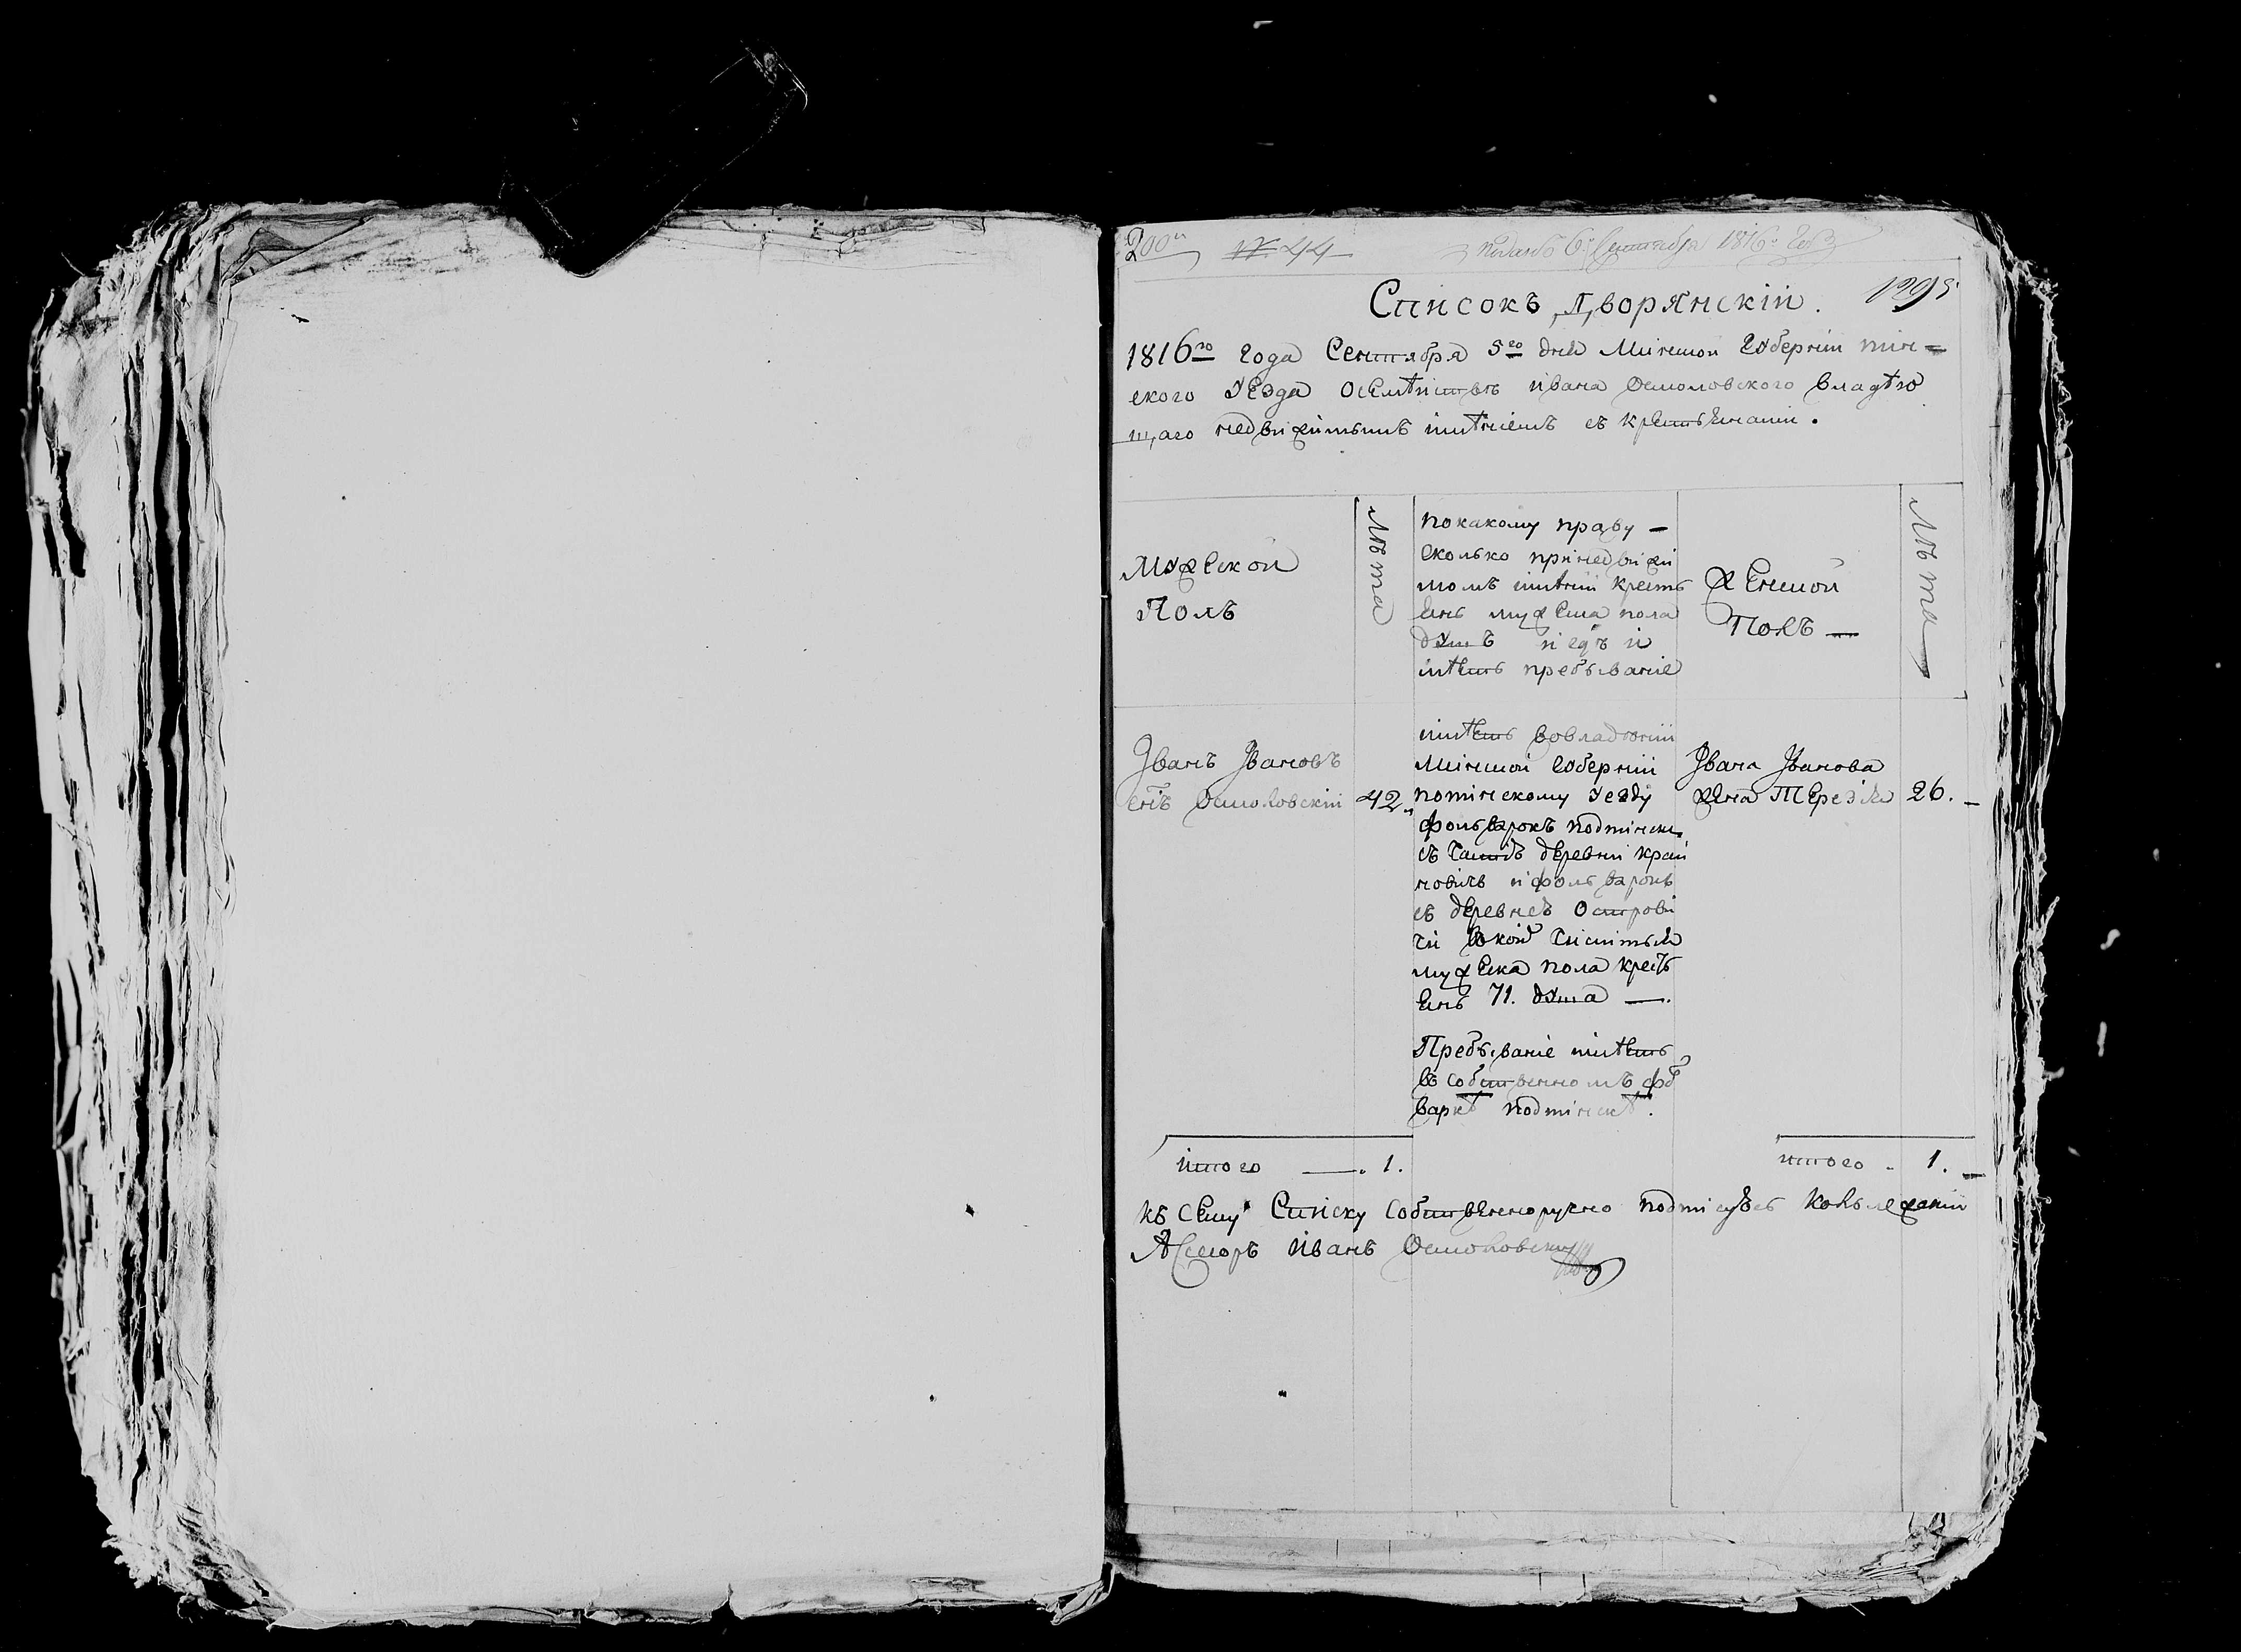 200
№ 44
Поданъ 6го Сентября 1816го Года
1295
Списокъ Дворянскій.
1816го Года Сентября 5го дня Минской Губерніи Пин=
ского Уезда Осемѣйствѣ ивана Осмоловского владѣю
щаго недвижимымъ имѣніемъ съ крестьянами.
Мужеской
Полъ
Лѣта
покакому праву —
сколько принедвижи
момъ имѣніи кресть
янъ мужеска пола
душъ и гдѣ и
имѣетъ пребываніе
Женской
Полъ —
Лѣта
Іванъ Івановъ
снъ Осмоловскій
42
имѣетъ вовладѣніи
Минской Губерніи
попинскому Уезду
фольварокъ подпинскъ
съ Частю деревни край
новичъ и фольварокъ
съ деревнею Острови
чи вкоихъ числится
мужеска пола кресть
янъ 71. душа —.
Івана Іванова
жена Терезія
26. —
Пребываніе имѣетъ
въ собственномъ фол
варкѣ подпинскѣ.
итого —. 1.
итого - 1. —
къ сему Списку Собственноручно подписуюсь коллежскій
Ассесоръ Иванъ Осмоловскій